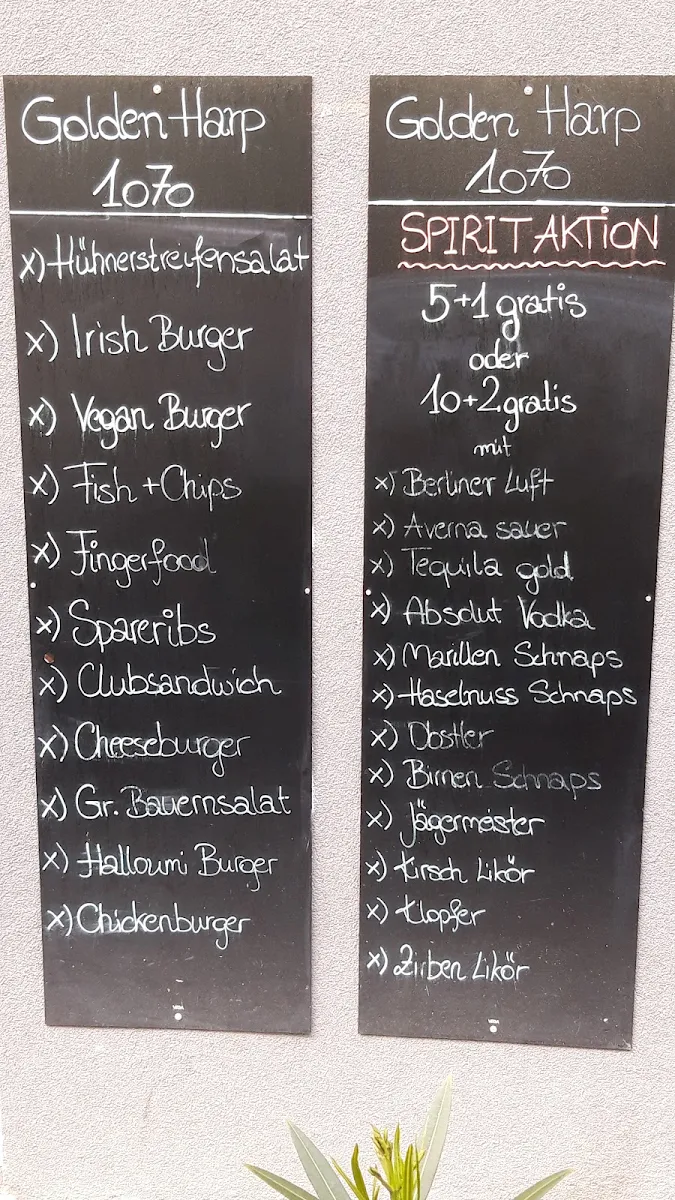 Golden Harp
1070
x) Hühnerstreifensalat
x) Irish Burger
x) Vegan Burger
x) Fish + Chips
x) Fingerfood
x) Spareribs
x) Clubsandwich
x) Cheeseburger
x) Gr. Bauernsalat
x) Halloumi Burger
x) Chickenburger
Golden Harp
1070
SPIRIT AKTiON
5+1 gratis
oder
10+2 gratis
mit
x) Berliner Luft
x) Averna sauer
x) Tequila gold
x) Absolut Vodka
x) Marillen Schnaps
x) Haselnuss Schnaps
x) Obstler
x) Birnen Schnaps
x) Jägermeister
x) Kirsch Likör
x) Klopfer
x) Zirben Likör